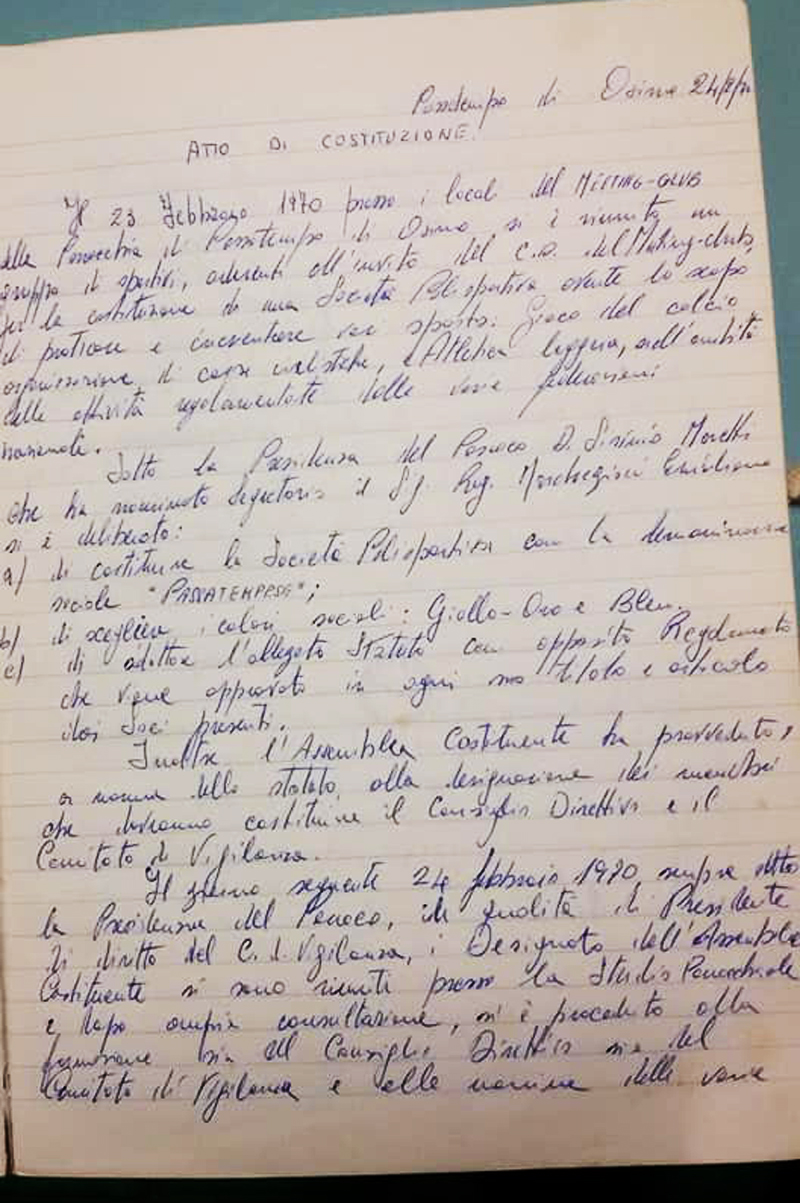 Passatempo di Osimo 24/2/70
ATTO DI COSTITUZIONE.
Il 23 Febbraio 1970 presso i local del MEETING-CLUB
della Parrocchia di Passatempo di Osimo, si è riunito un
gruppo di sportivi, aderenti all'invito del C.D. del Meeting-club,
per la costituzione di una Società Polisportiva avente lo scopo
di praticare e incentivare vari sports: Gioco del calcio
organizzazione di corse ciclistiche, e Atletica leggera, nell'ambito
delle attività regolamentate dalle varie federazioni
nazionali.
Sotto la Presidenza del Parroco D. Sisinio Moretti
che ha nominato Segretario il Sig. Rag. Marchegiani Emiliano
si è deliberato:
a) di costituire la Società Polisportiva con la denominazione
sociale "PASSATEMPESE";
b) di scegliere i colori sociali: Giallo-Oro e Bleu.
c) di adottare l'allegato Statuto con apposito Regolamento
che viene approvato in ogni suo titolo e articolo
dai Soci presenti.
Inoltre l'Assemblea Costituente ha provveduto,
a norma dello statuto, alla designazione dei membri
che dovranno costituire il Consiglio Direttivo e il
Comitato di Vigilanza.
Il giorno seguente 24 febbraio 1970, sempre sotto
la Presidenza del Parroco, in qualità di Presidente
di diritto del C. d. Vigilanza, i Designati dell'Assemblea
Costituente si sono riuniti presso lo Studio Parrocchiale
e dopo ampia consultazione, si è proceduto alla
formazione sia del Consiglio Direttivo sia del
Comitato di Vigilanza e alla nomina delle varie